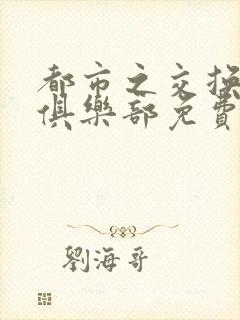 都市之交換
俱樂部免費
劉海哥